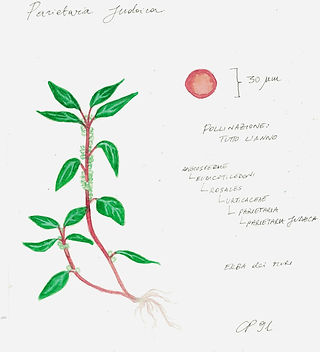 Parietaria Judaica
30 µm
POLLINAZIONE:
TUTTO L'ANNO
ANGIOSPERME
EUDICOTILEDONI
ROSALES
URTICACEAE
PARIETARIA
PARIETARIA JUDAICA
ERBA dei MURI
CP 91